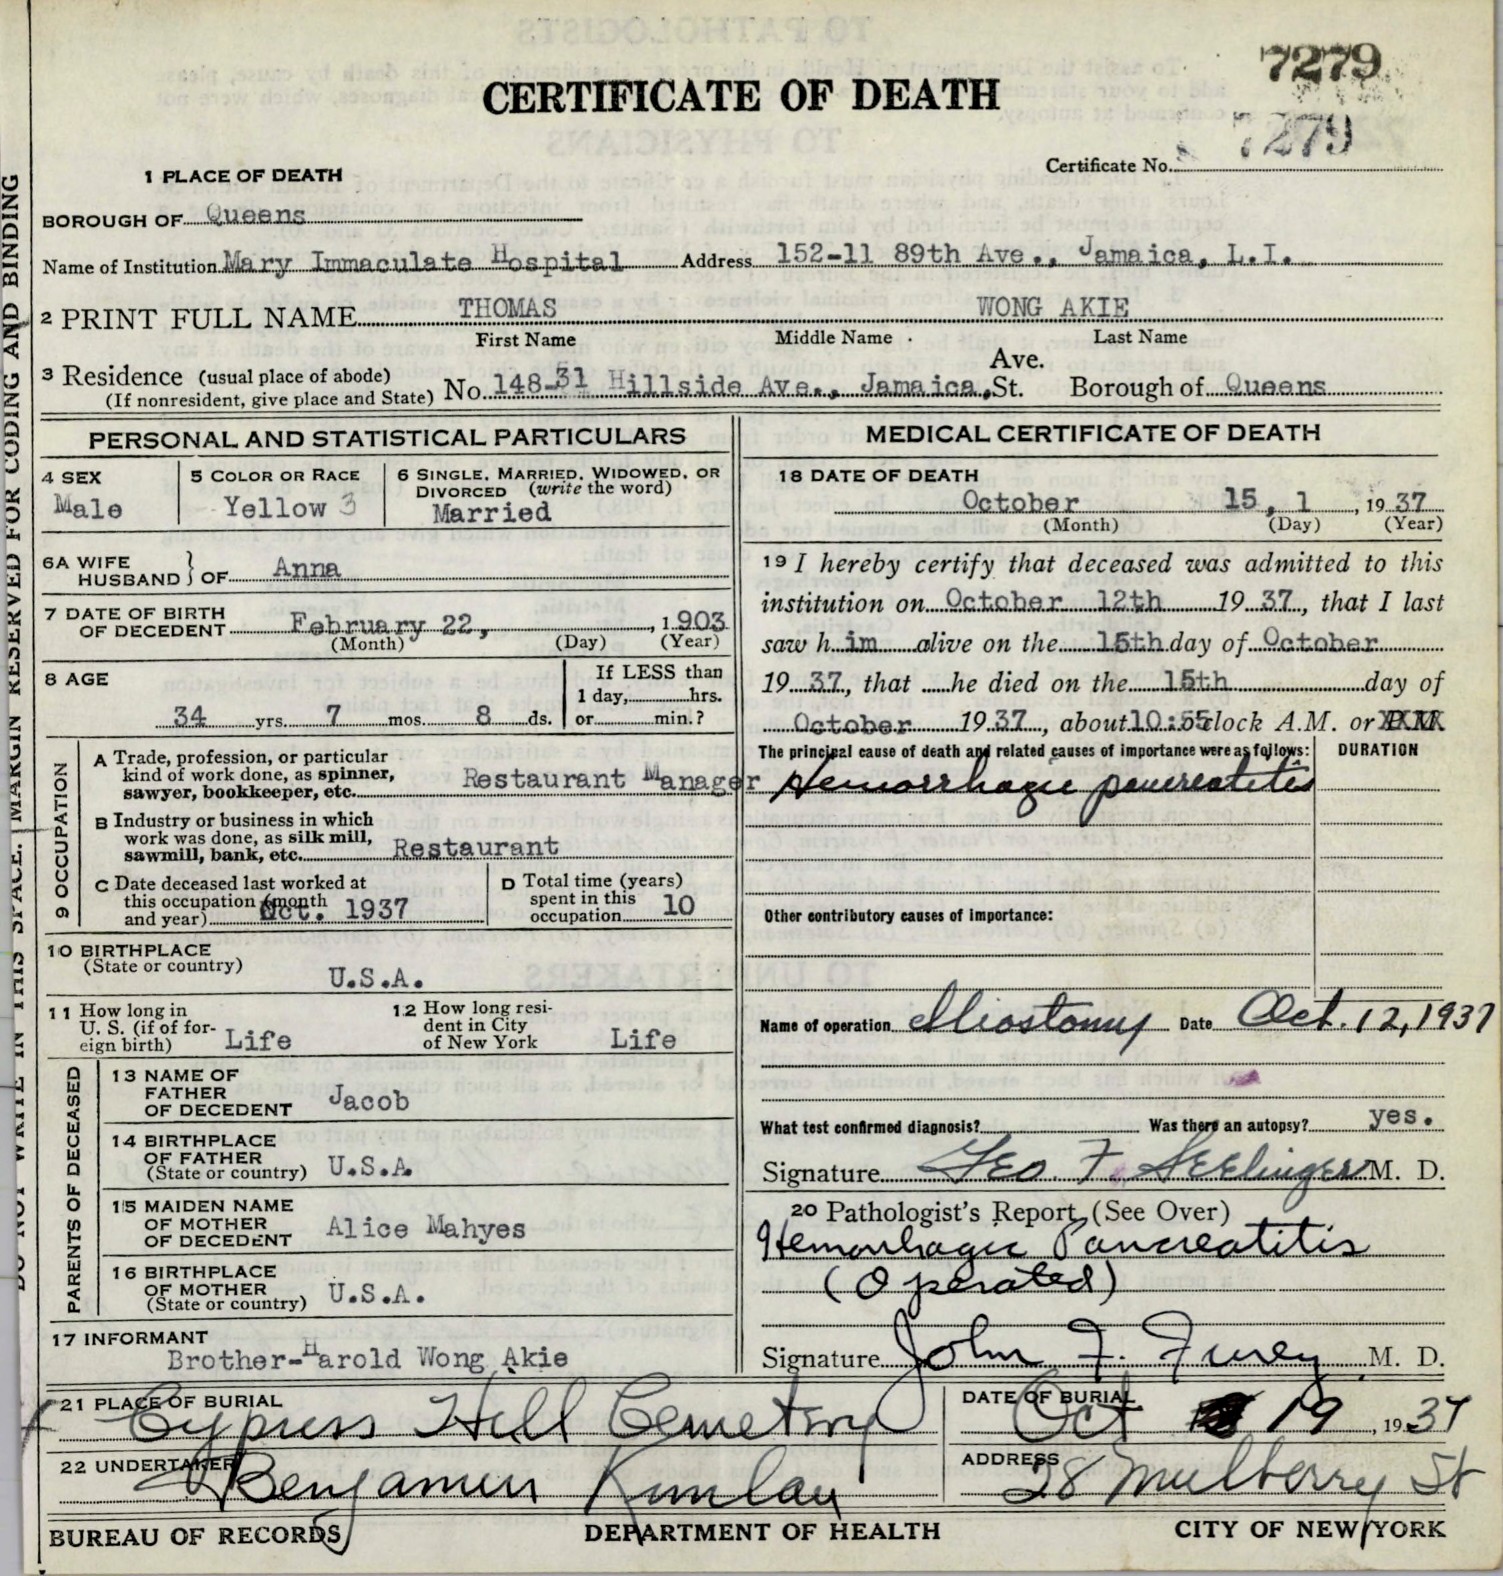 7279
CERTIFICATE OF DEATH
7279
Certificate No.
1 PLACE OF DEATH
BOROUGH OF Queens
Name of Institution Mary Immaculate Hospital Address 152-11 89th Ave., Jamaica, L.I.
2 PRINT FULL NAME THOMAS WONG AKIE
First Name Middle Name Last Name
3 Residence (usual place of abode) No. 148-31 Hillside Ave., Jamaica, Ave. St. Borough of Queens
(If nonresident, give place and State)
PERSONAL AND STATISTICAL PARTICULARS
4 SEX
Male
5 COLOR OR RACE
Yellow 3
6 SINGLE, MARRIED, WIDOWED, OR
DIVORCED (write the word)
Married
6A WIFE
HUSBAND } OF Anna
7 DATE OF BIRTH
OF DECEDENT February 22, , 1903
(Month) (Day) (Year)
8 AGE
34 yrs. 7 mos. 8 ds.
If LESS than
1 day, hrs.
or min.?
9 OCCUPATION
A Trade, profession, or particular
kind of work done, as spinner,
sawyer, bookkeeper, etc. Restaurant Manager
B Industry or business in which
work was done, as silk mill,
sawmill, bank, etc. Restaurant
C Date deceased last worked at
this occupation (month
and year) Oct. 1937
D Total time (years)
spent in this
occupation 10
10 BIRTHPLACE
(State or country)
U.S.A.
11 How long in
U. S. (if of for-
eign birth) Life
12 How long resi-
dent in City
of New York Life
PARENTS OF DECEASED
13 NAME OF
FATHER
OF DECEDENT Jacob
14 BIRTHPLACE
OF FATHER
(State or country) U.S.A.
15 MAIDEN NAME
OF MOTHER
OF DECEDENT Alice Mahyes
16 BIRTHPLACE
OF MOTHER
(State or country) U.S.A.
17 INFORMANT
Brother-Harold Wong Akie
MEDICAL CERTIFICATE OF DEATH
18 DATE OF DEATH
October 15, 1 , 19 37
(Month) (Day) (Year)
19 I hereby certify that deceased was admitted to this
institution on October 12th 19 37, that I last
saw h im alive on the 15th day of October
19 37, that he died on the 15th day of
October 19 37, about 10:55 o'clock A.M. or P.M.
The principal cause of death and related causes of importance were as follows: DURATION
Hemorrhagic pancreatitis
Other contributory causes of importance:
Name of operation Iliostomy Date Oct. 12, 1937
What test confirmed diagnosis? Was there an autopsy? yes.
Signature Geo. F. Seelinger M. D.
20 Pathologist's Report (See Over)
Hemorrhagic Pancreatitis
(Operated)
Signature John F. Furey M. D.
21 PLACE OF BURIAL
Cypress Hill Cemetery
DATE OF BURIAL
Oct 19, 19 37
22 UNDERTAKER
Benjamin Kimlau
ADDRESS
28 Mulberry St
BUREAU OF RECORDS DEPARTMENT OF HEALTH CITY OF NEW YORK
MARGIN RESERVED FOR CODING AND BINDING
DO NOT WRITE IN THIS SPACE.